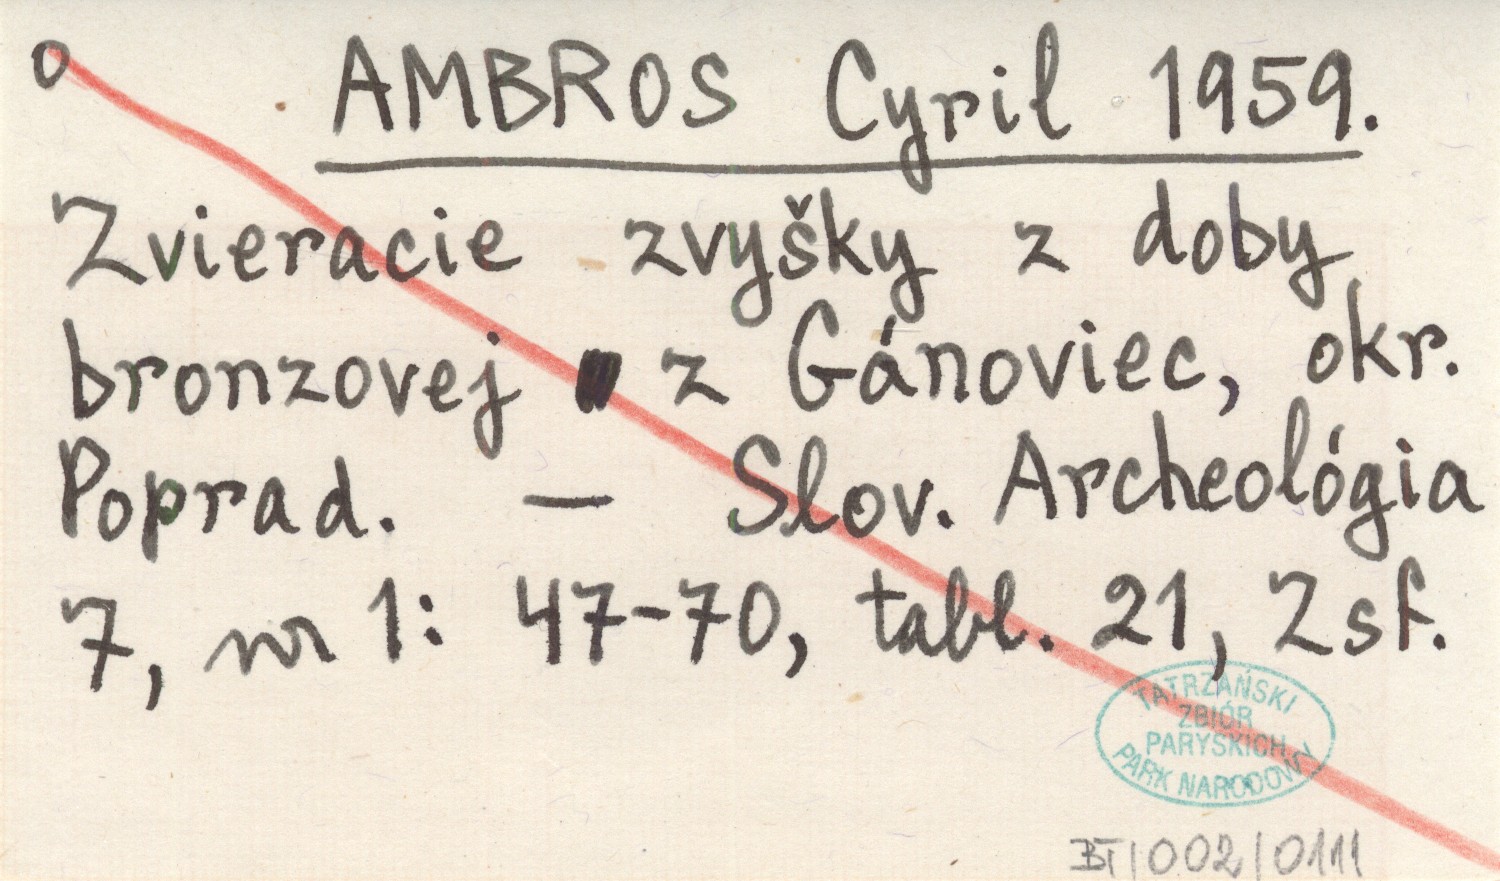 o AMBROS Cyril 1959.
Zvieracie zvyšky z doby
bronzovej z Gánoviec, okr.
Poprad. — Slov. Archeológia
7, nr 1: 47-70, tabl. 21, Zsf.
TATRZAŃSKI
ZBIÓR
PARYSKICH
PARK NARODOWY
BT/002/0111